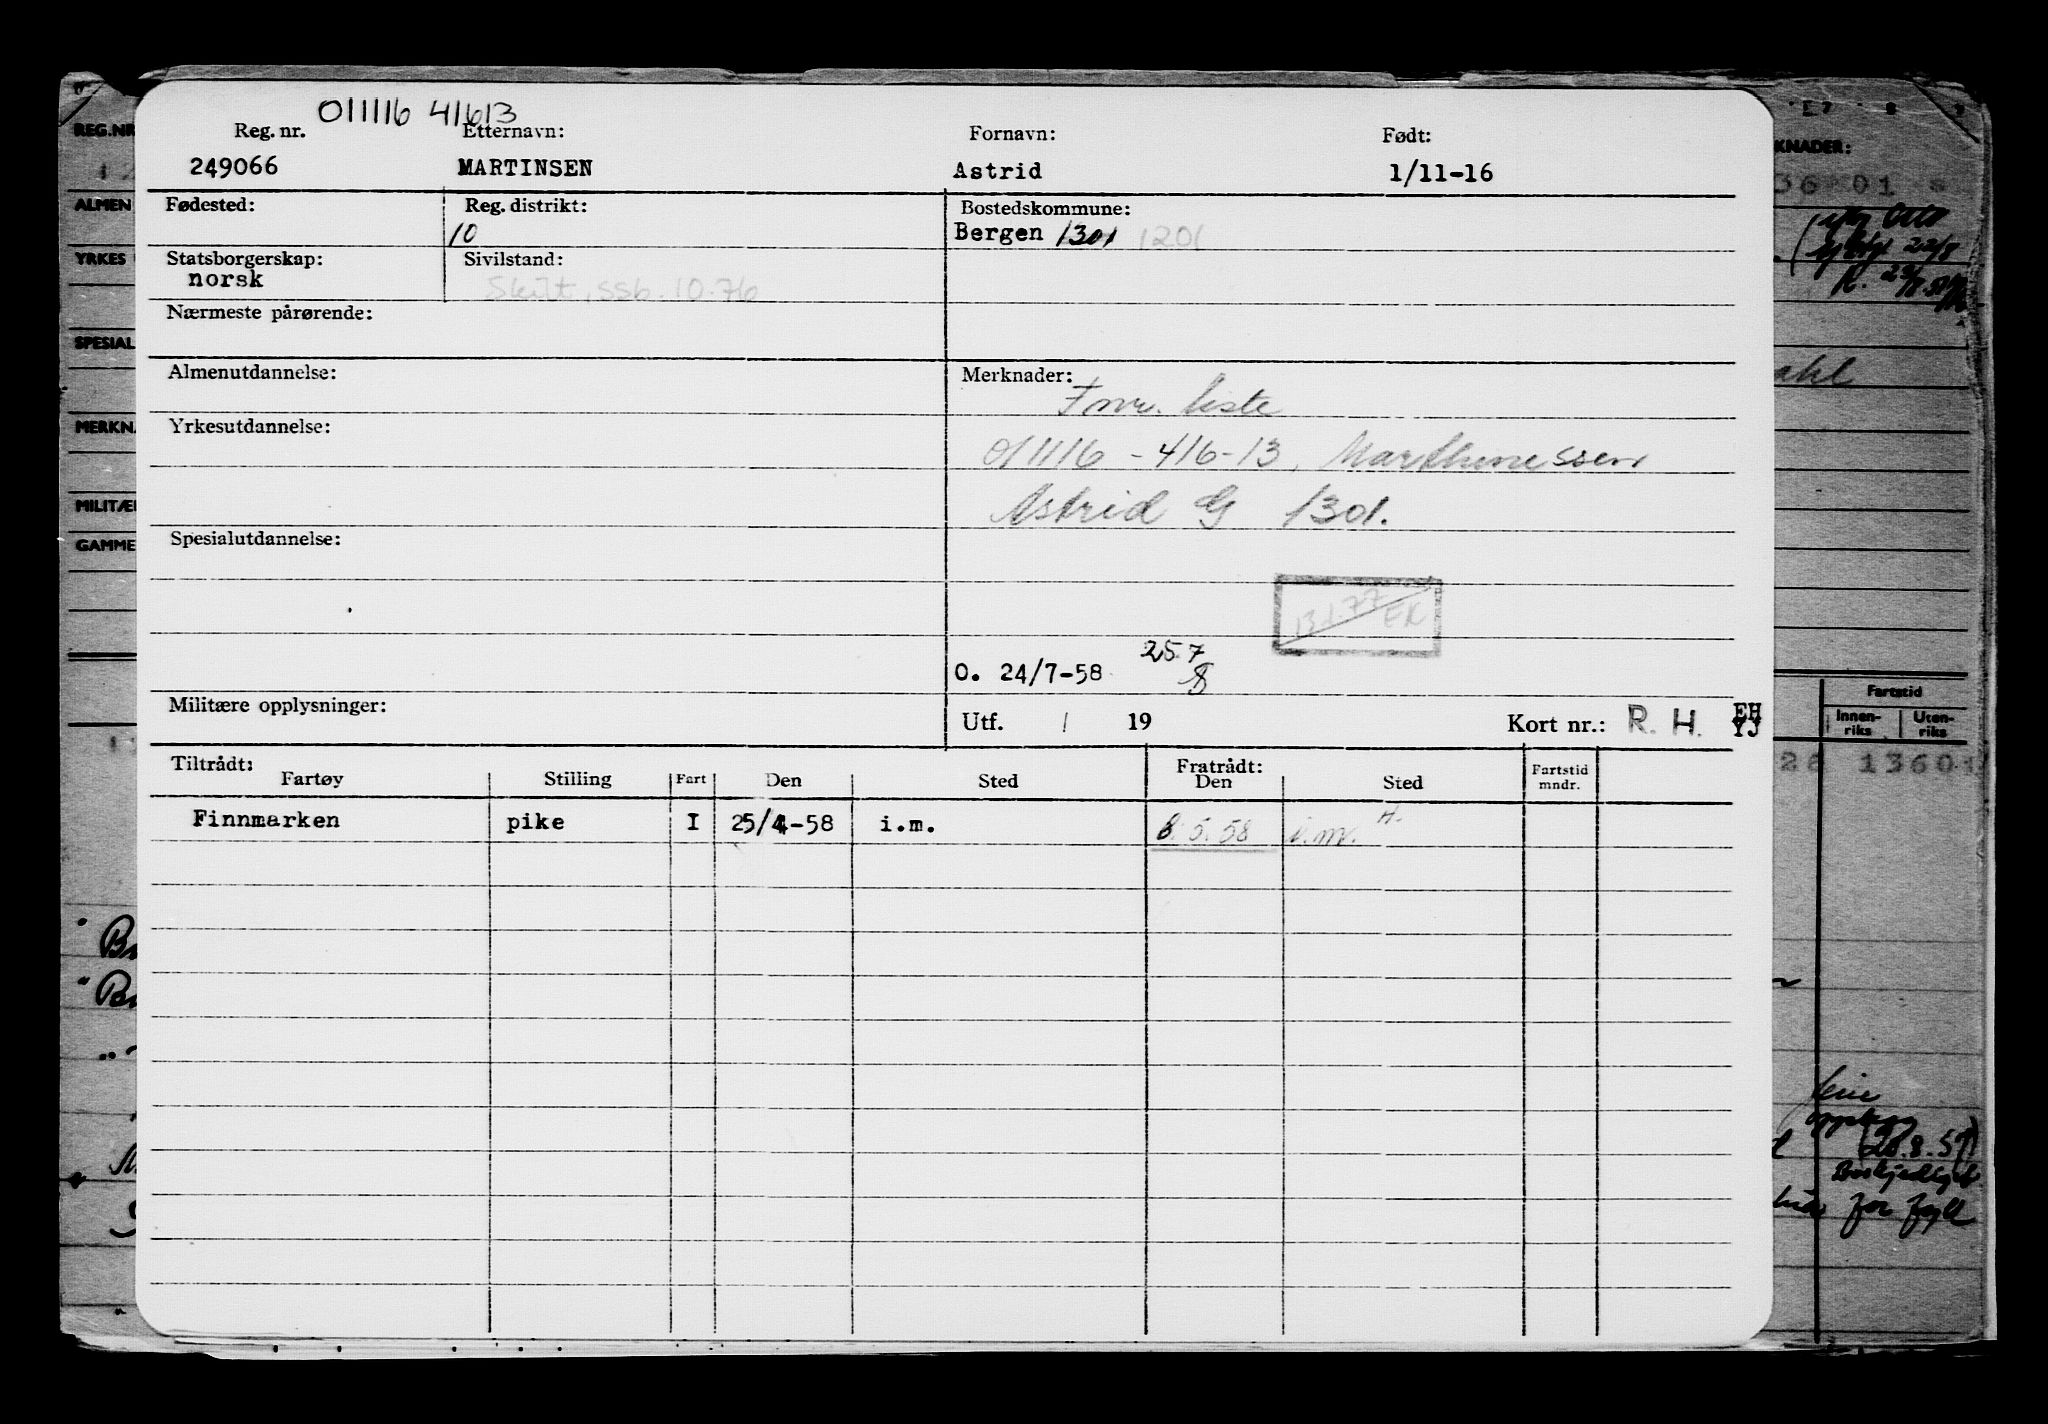 011116 41613
Reg. nr. Etternavn: Fornavn: Født:
249066 MARTINSEN Astrid 1/11-16
Fødested: Reg. distrikt: Bostedskommune:
10 Bergen 1301 1201
Statsborgerskap: Sivilstand:
norsk Skilt, ssb. 10.76
Nærmeste pårørende:
Almenutdannelse: Merknader:
Yrkesutdannelse:
011116 - 416-13, Marthinessen
Astrid G 1301.
Spesialutdannelse:
13.1.77 EK
O. 24/7-58 25.7
8
Militære opplysninger: Utf. / 19 Kort nr.: R. H. EH
YJ
Tiltrådt: Fratrådt:
Fartøy Stilling Fart Den Sted Den Sted Fartstid
mndr.
Finnmarken pike I 25/4-58 i.m. 8.5.58 i.m. H.
REG.NR
ALMEN
YRKES
SPESIAL
MERKN
MILITÆ
GAMME
E7 8 9
KNADER:
36 01
Fartstid
Innen-
riks
Uten-
riks
26 13601
28.8.57
for fyll